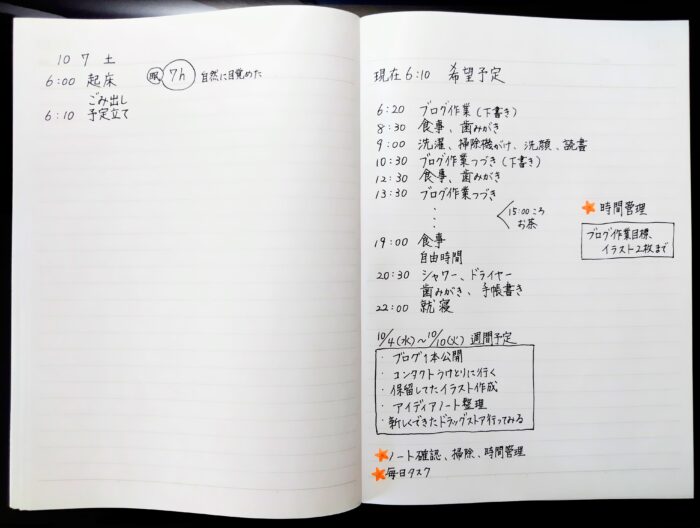 10 7 土
6:00 起床 眠 7h 自然に目覚めた
ごみ出し
6:10 予定立て
現在6:10 希望予定
6:20 ブログ作業(下書き)
8:30 食事、歯みがき
9:00 洗濯、掃除機がけ、洗顔、読書
10:30 ブログ作業つづき(下書き)
12:30 食事、歯みがき
13:30 ブログ作業つづき
15:00ころ
お茶
19:00 食事
自由時間
20:30 シャワー、ドライヤー
歯みがき、手帳書き
22:00 就寝
時間管理
ブログ作業目標、
イラスト2枚まで
10/4(水)~10/10(火) 週間予定
・ブログ1本公開
・コンタクトうけとりに行く
・保留してたイラスト作成
・アイディアノート整理
・新しくできたドラッグストア行ってみる
ノート確認、掃除、時間管理
毎日タスク